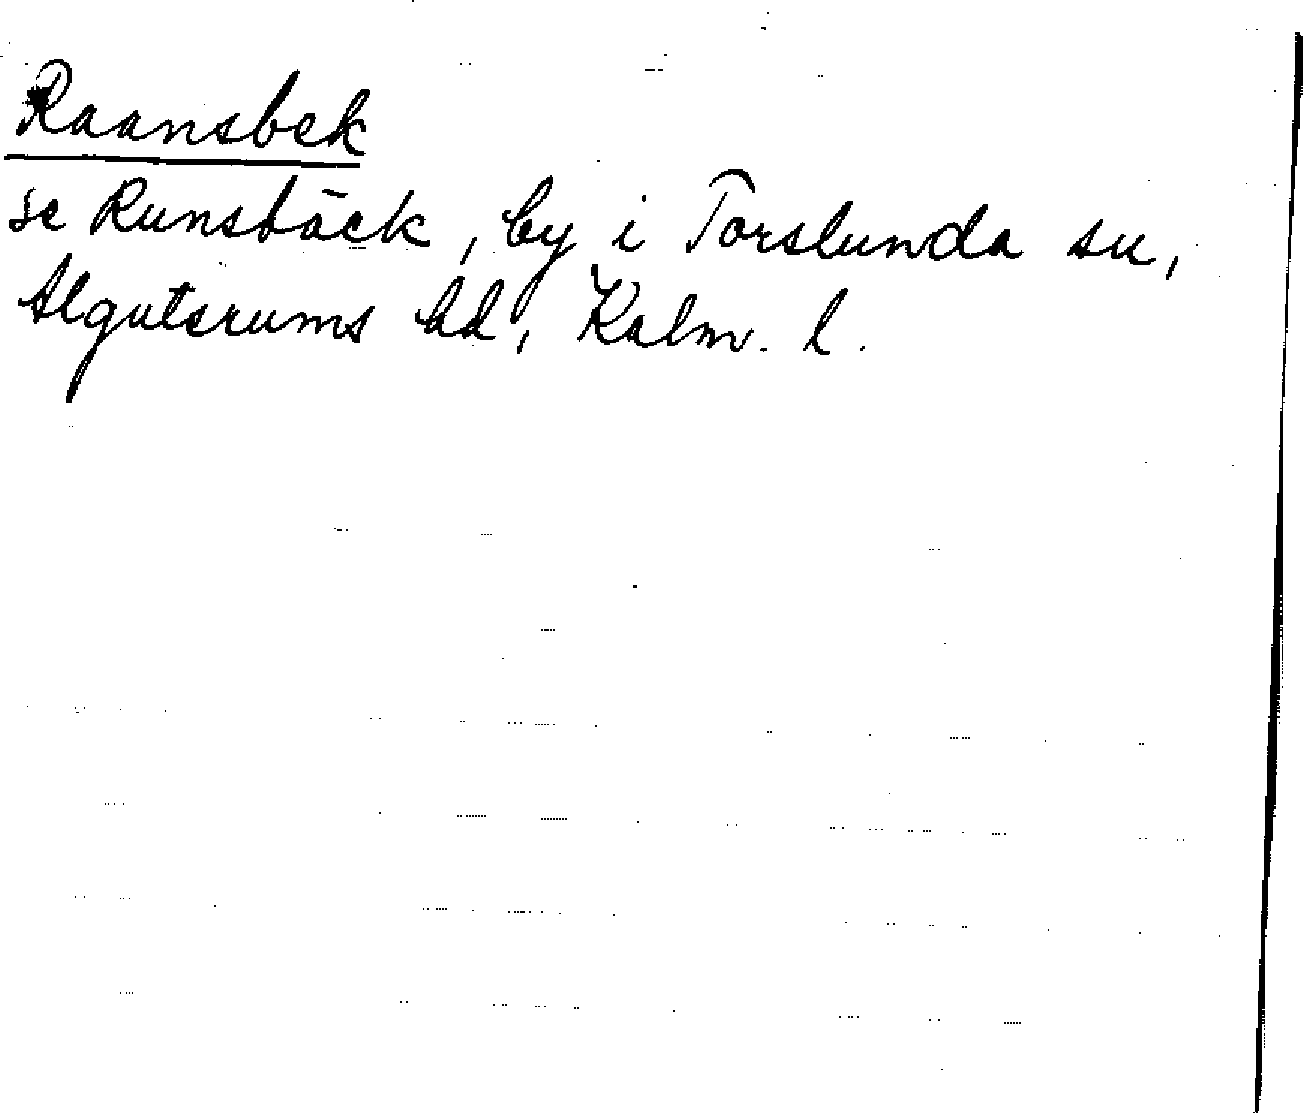 Raansbek
se Runsbäck, by i Torslunda sn,
Algutsrums hd, Kalm. l.